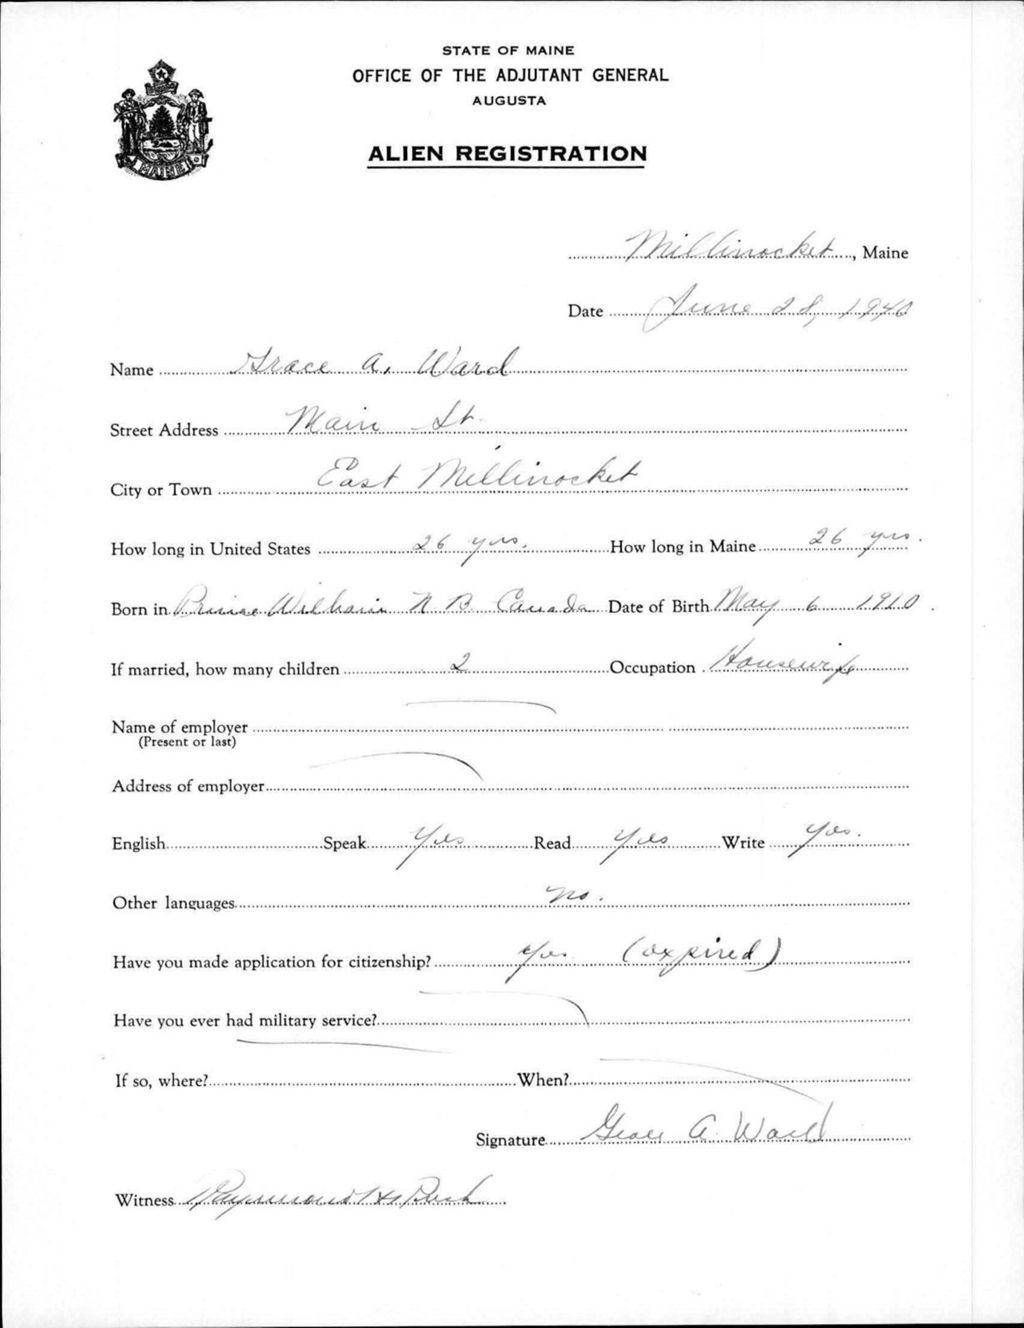 STATE OF MAINE
OFFICE OF THE ADJUTANT GENERAL
AUGUSTA
ALIEN REGISTRATION
MAINE
Millinocket, Maine
Date June 28, 1940
Name Grace A. Ward
Street Address Main St.
City or Town East Millinocket
How long in United States 26 yrs. How long in Maine 26 yrs.
Born in Prince William N B Canada Date of Birth May 6 1910.
If married, how many children 2 Occupation Housewife
Name of employer
(Present or last)
Address of employer
English Speak Yes Read Yes Write Yes.
Other languages no.
Have you made application for citizenship? yes (expired)
Have you ever had military service?
If so, where? When?
Signature Grace A. Ward
Witness Raymond H.